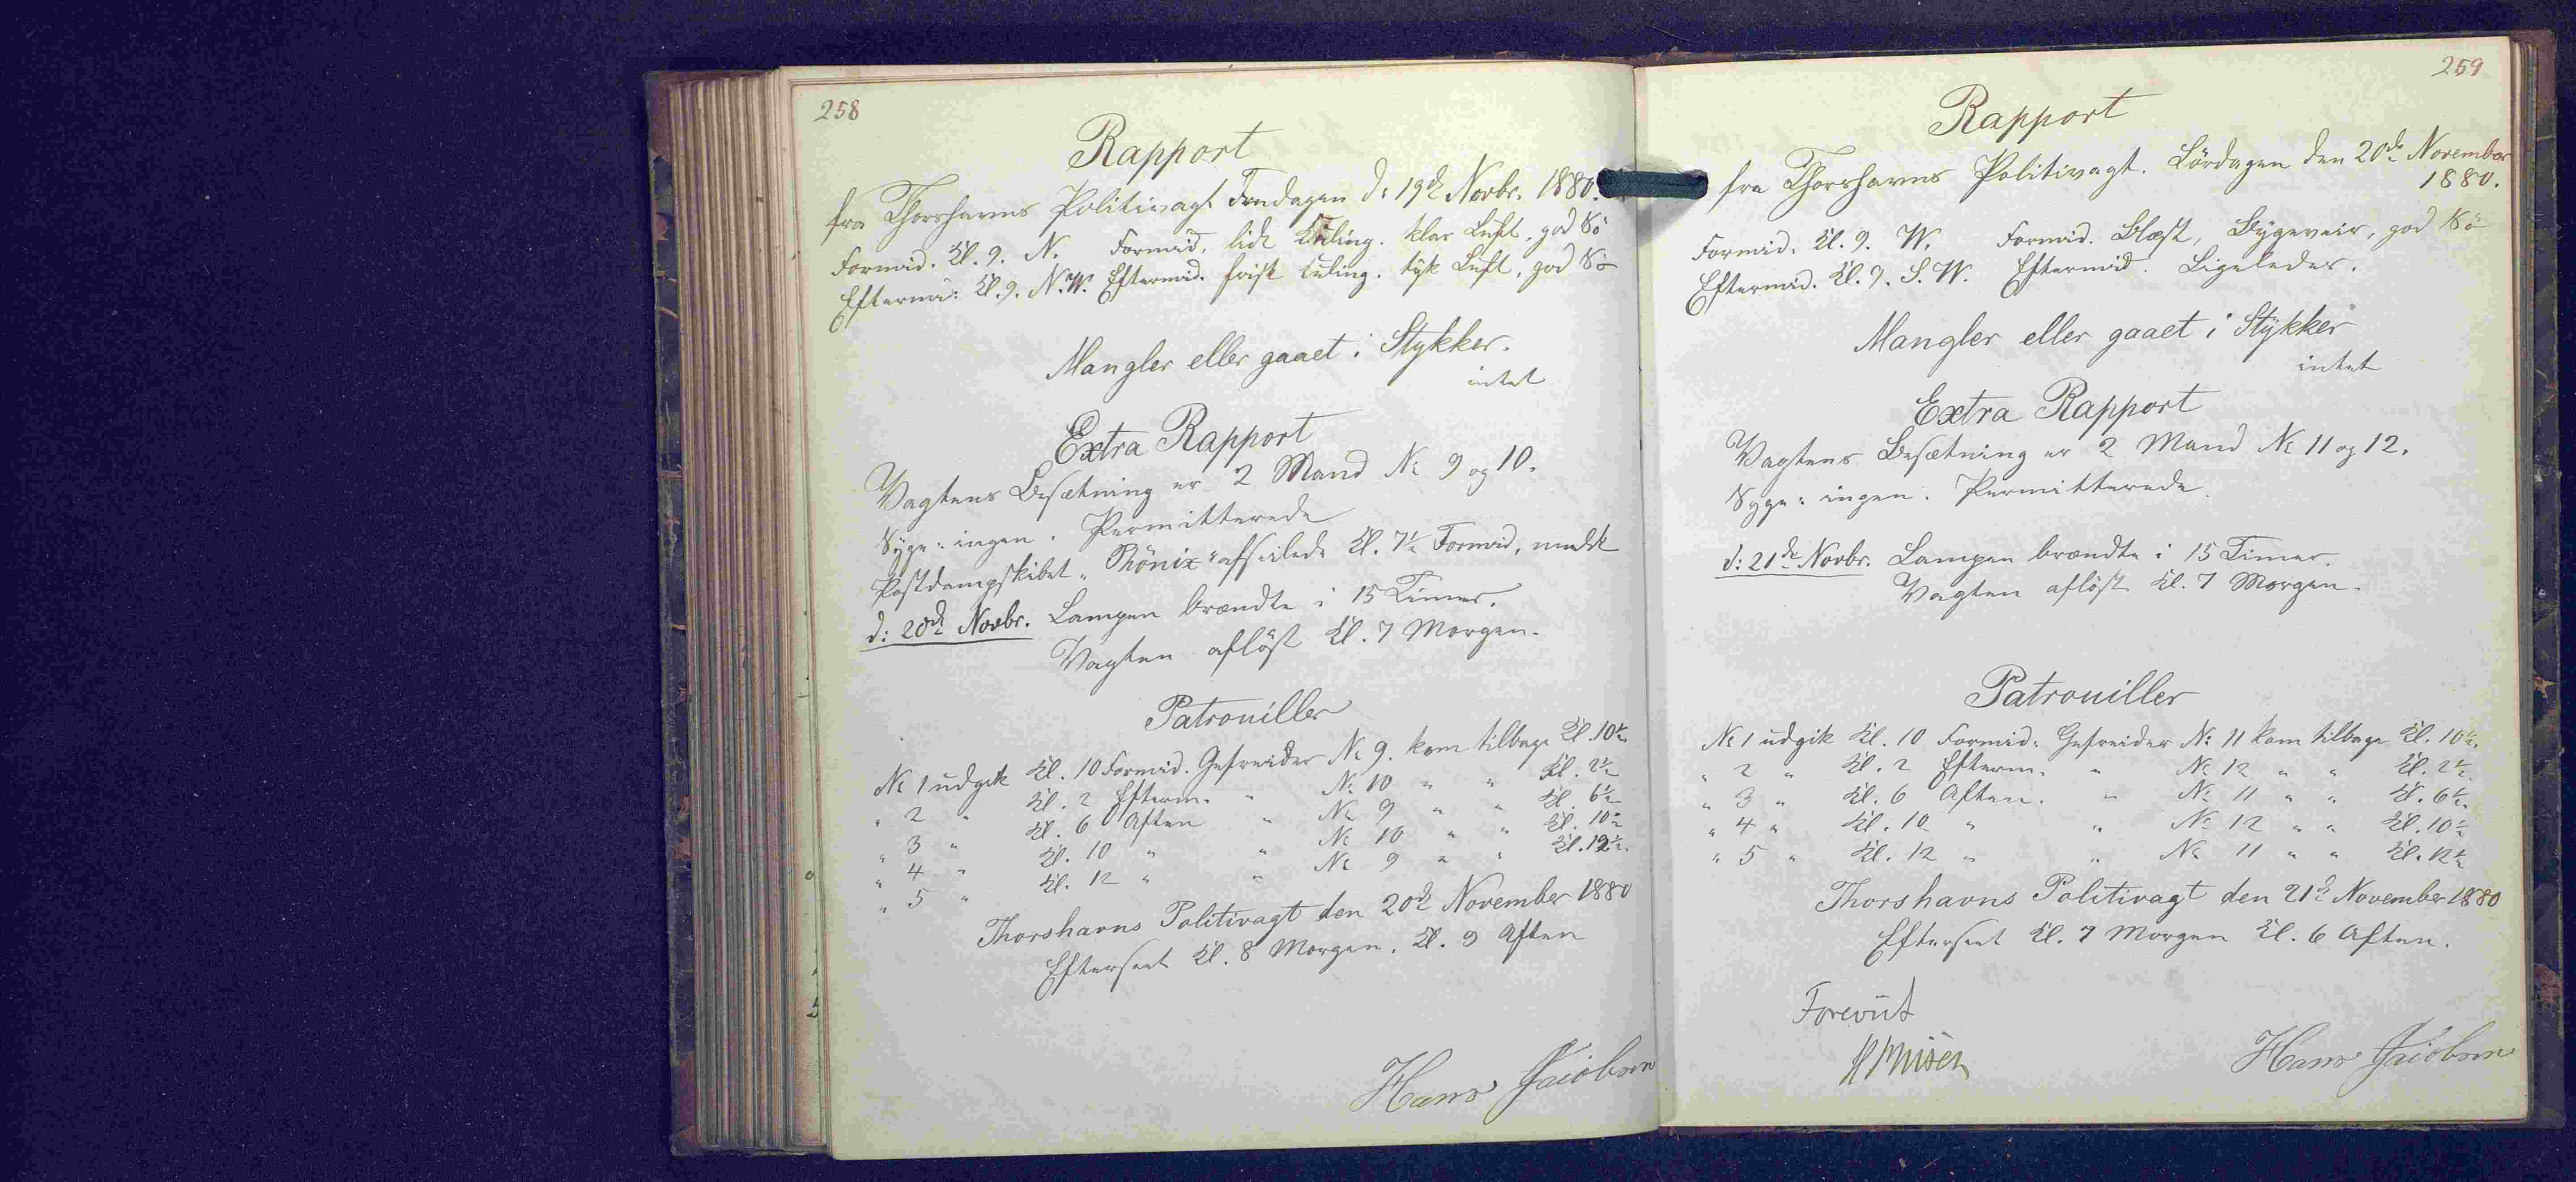 258
Rapport
fra Thorshavns Politivagt Fredagen d: 19de Novbr. 1880.
Formid. Kl. 9. N. Formid. lidt Kuling. klar Luft, god Sö
Eftermid: Kl. 9. N.W. Eftermid. frisk Kuling. tyk Luft, god Sö
Mangler eller gaaet i Stykker.
intet
Extra Rapport
Vagtens Besætning er 2 Mand No 9 og 10.
Syge: ingen. Permitterede
Postdampskibet „Phönix“ afseilede Kl. 7½ Formid,
d: 20de Novbr. Lampen brændte i 15 Timer.
Vagten aflöst Kl. 7 Morgen.
Patrouiller
No 1 udgik Kl. 10 Formid. Gefreider No 9. kom tilbage Kl. 10½
„ 2 „ Kl. 2 Efterm. „ No 10 „ „ Kl. 2½
„ 3 „ Kl. 6 Aften „ No 9 „ „ Kl. 6½
„ 4 „ Kl. 10 „ „ No 10 „ „ Kl. 10½
„ 5 „ Kl. 12 „ „ No 9 „ „ Kl. 12½.
Thorshavns Politivagt den 20de November 1880
Efterseet Kl. 8 Morgen. Kl. 9 Aften
Hans Jacobsen
259
Rapport
fra Thorshavns Politivagt. Lördagen den 20de November
1880.
Formid. Kl. 9. W. Formid. Blæst, Bygeveir, god Sö
Eftermid. Kl. 9. S.W. Eftermid. Ligeledes.
Mangler eller gaaet i Stykker
intet
Extra Rapport
Vagtens Besætning er 2 Mand No 11 og 12.
Syge: ingen. Permitterede
d: 21de Novbr. Lampen brændte i 15 Timer.
Vagten aflöst Kl. 7 Morgen.
Patrouiller
No 1 udgik Kl. 10 Formid. Gefreider No 11 kom tilbage Kl. 10½.
„ 2 „ Kl. 2 Efterm. „ No 12 „ „ Kl. 2½.
„ 3 „ Kl. 6 Aften. „ No 11 „ „ Kl. 6½.
„ 4 „ Kl. 10 „ „ No 12 „ „ Kl. 10½
„ 5 „ Kl. 12 „ „ No 11 „ „ Kl. 12½
Thorshavns Politivagt den 21de November 1880
Efterseet Kl. 7 Morgen Kl. 6 Aften.
Forevist
Hans Jacobsen